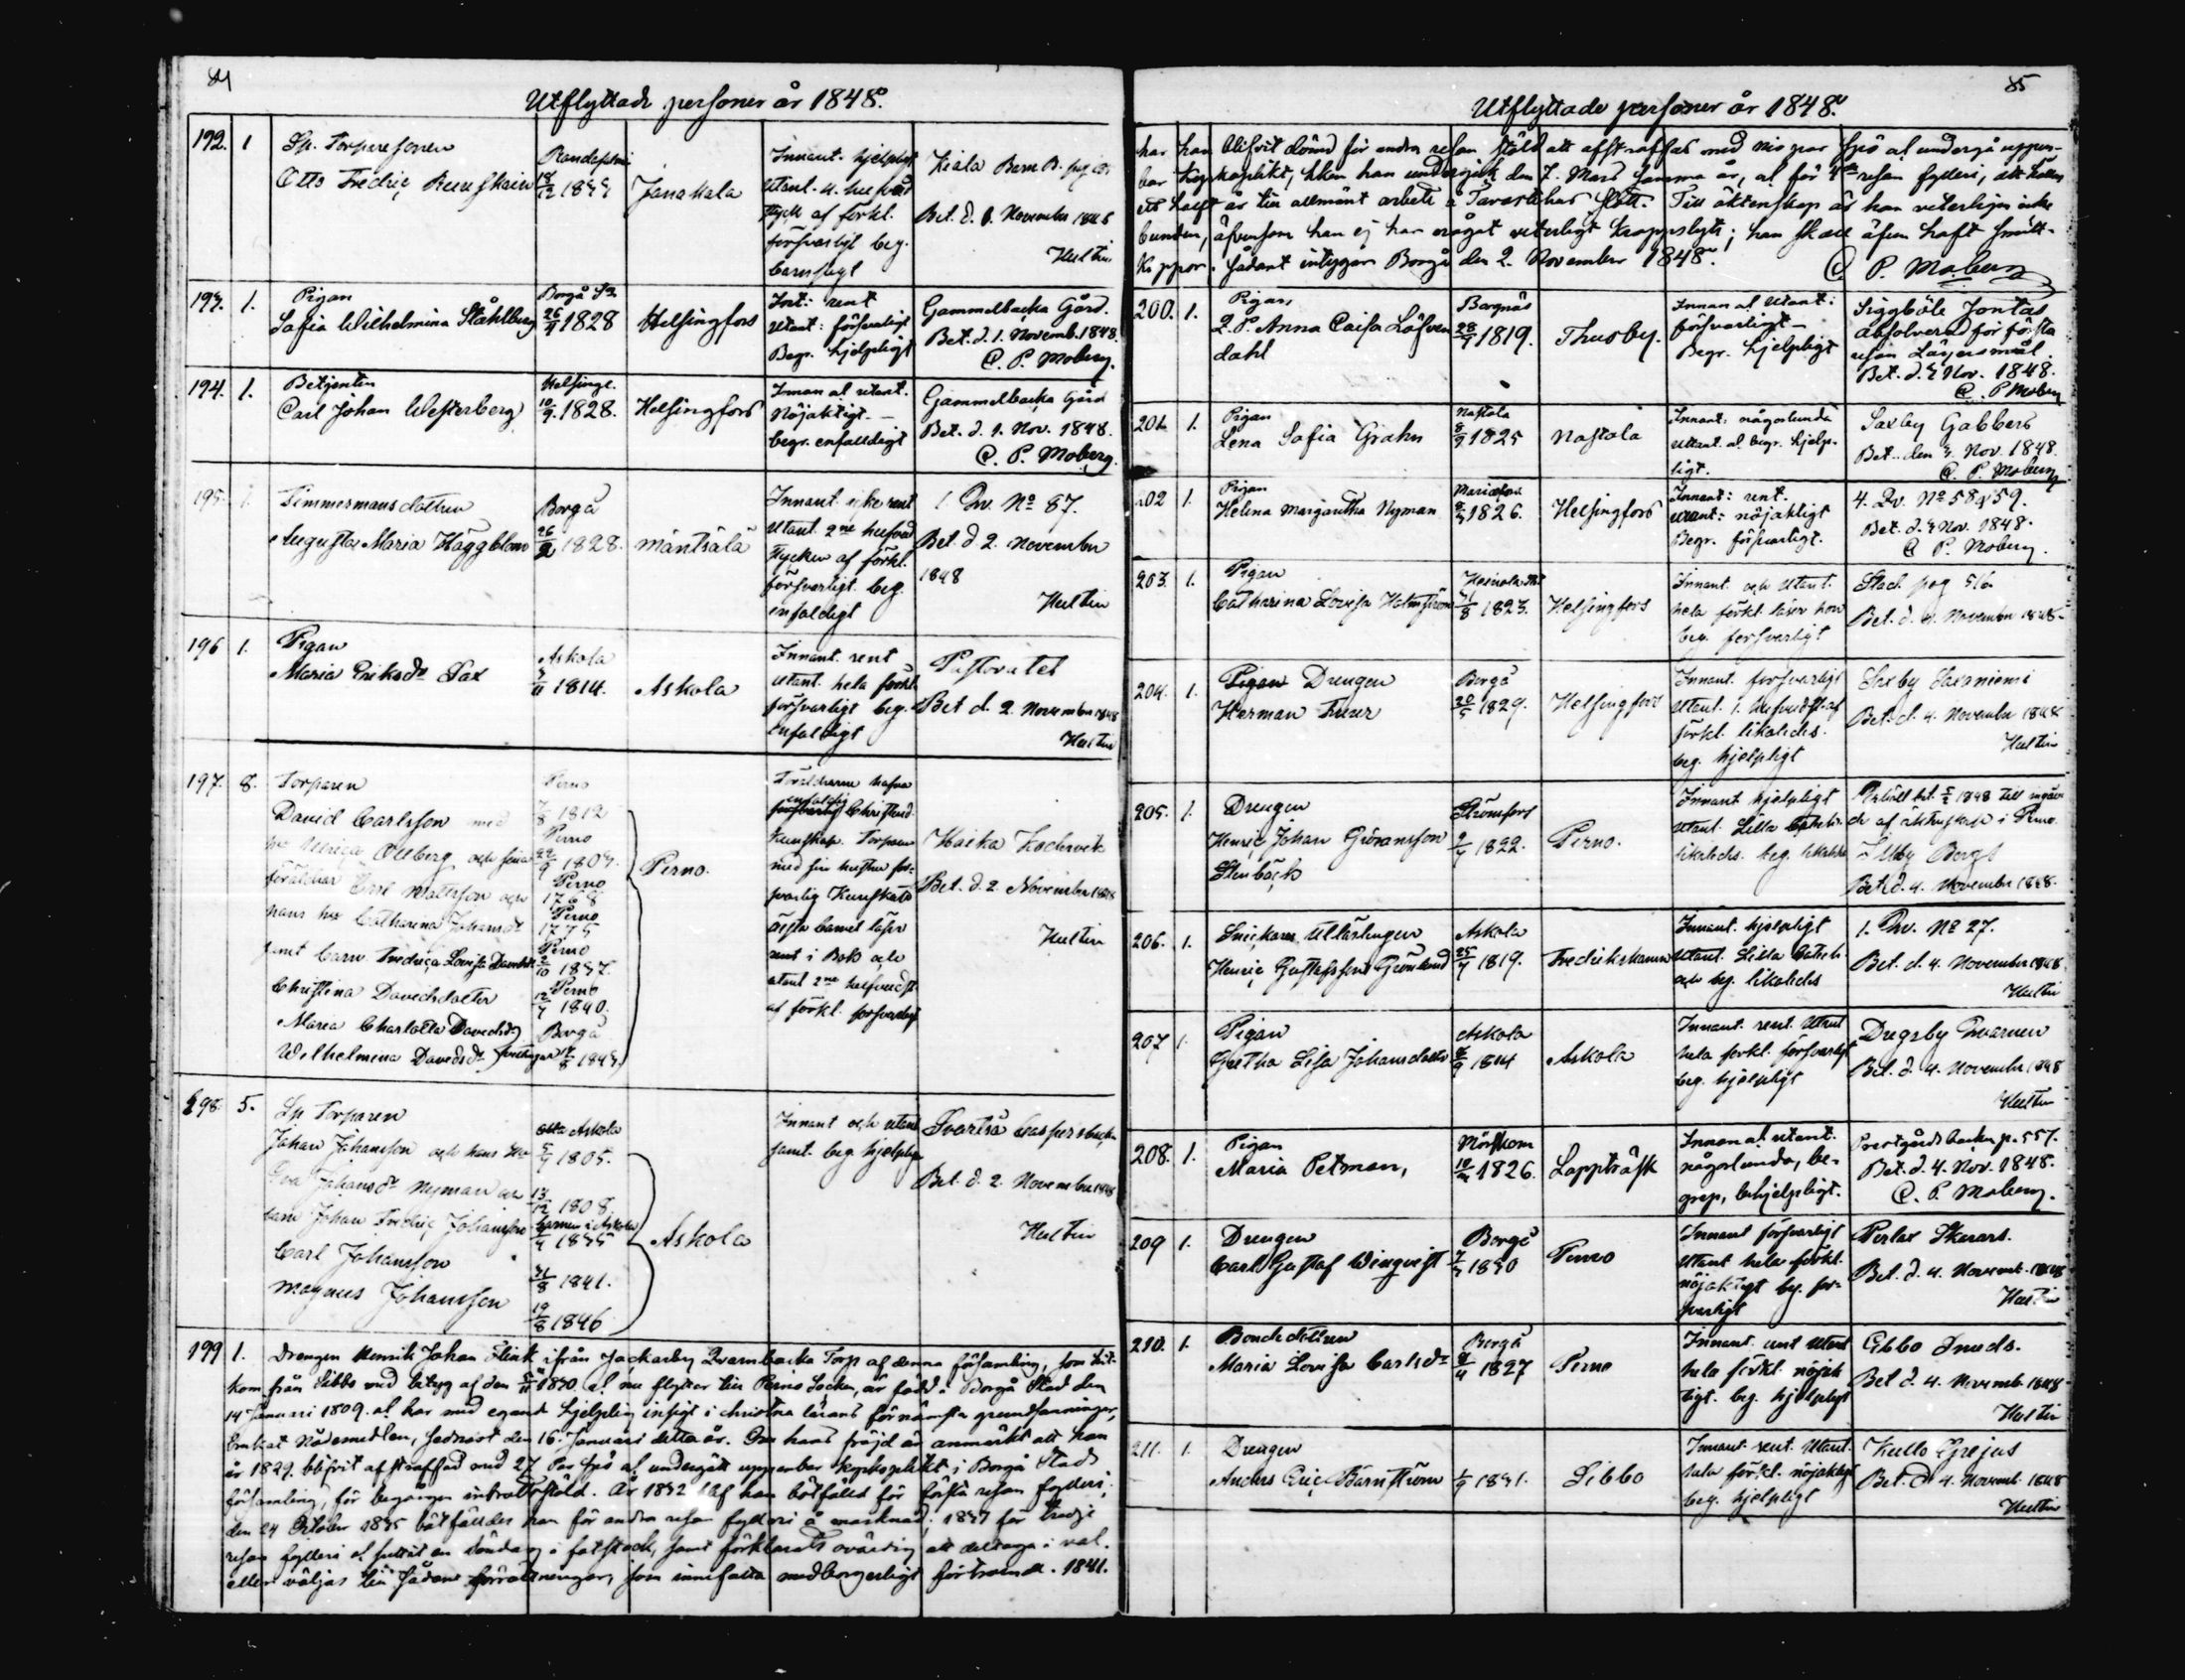 84
Utflyttade personer år 1848.
192. 1
Sp. Torparesonen
Otto Fredric
18/12
Janakala
Innant. hjelpligt
utant. 4. hufvud
stycke af förkl.
försvarligt beg.
barnsligt
Kiala
Bet. d. 1. November 1848
Hultin
193. 1.
Pigan
Sofia Wilhelmina Ståhlberg
Borgå
1828
Helsingfors
rent
Utant: försvarligt
Begr. hjelpligt
Gammelbacka Gård.
Bet. d. 1. Novemb. 1848.
C. P. Moberg.
194. 1.
Betjenten
Carl Johan Westerberg
Helsinge
10/9 1828.
Helsingfors
Innan at utant.
Nöjaktigt.
begr. enfaldigt
Gammelbacka Gård
Bet. d. 1. Nov. 1848.
C. P. Moberg.
195. 1.
Timmermansdottren
Augusta Maria Häggblom
Borgå
26/2 1828.
Mäntsälä
Innant. icke rent
Utant. 2ne hufvud
stycken af förkl.
försvarligt beg.
enfaldigt
1 Qv. No 87.
Bet. d 2. November
1848
Hultin
196 1.
Pigan
Maria Eriksdr Sax
Askola
1814.
Askola
Innant. rent
utant. hela förkl.
försvarligt beg.
enfaldigt
Pastoratet
Bet d. 2. November 1848
Hultin
197. 8.
Torparen
David Carlsson med
Ulrica Öllberg och sina
föräldrar Carl Mattsson och
hans hu Catharina Johansdr
samt barn Fredrica Lovisa Davidsdr
Christina Davidsdotter
Maria Charlotta Davidsdr
Wilhelmina Davidsdr
Perno
1812
Perno
Perno
1768
Perno
1775
Perno
Perno
12/4 1840.
Borgå
Perno.
Föräldrarne hafva
enfaldig
försvarlig Christend.
Kunskap. Torparen
med sin hustru för-
svarlig Kunskap
äldsta barnet läser
rent i Bok och
utant 2ne hufvudst
af förkl. försvarligt
Bet. d. 2. November 1848
Hultin
198. 5.
Sp Torparen
Johan Johansson och hans Hu
Eva Johansdr Nyman och
barn Johan Fredric Johansson
Carl Johansson
Magnus Johansson
Askola
1805.
13/12 1808.
1841.
19/8 1846
Askola
Innant och utant
samt beg hjelpligt
Svartså
Bet. d. 2. November 1848
Hultin
199 1.
Drengen Henrik Johan Flink ifrån Jackarby Qvarnbacka Torp af denna församling, som hit-
kom från Sibbo med betyg af den 1830 at nu flyttar till Perno Socken, är född i Borgå Stad den
14 Januari 1809. at har med egande hjelplig insigt i christna lärans förnämsta grundsanningar,
brukat Nådemedlen, sednast den 16. Januari detta år. Om hans fräjd är anmärkt att han
år 1829. blifvit afstraffad med 27 Par spö at undergått uppenbar kyrkoplikt i Borgå Stads
församling, för begången inbrottsstöld. År 1832 blef han bötfälld för första resan fylleri;
den 24 October 1835 bötfälldes han för andra resan fylleri å marknad; för tredje
resan fylleri at suttit en Söndag i fotstock, samt förklarats ovärdig att deltaga i val.
eller väljas till sådane förrättningar, som innefatta medborgerligt förtroende. 1841.
85
Utflyttade personer år 1848.
har han blifvit dömd för andra resan stöld att afstraffas med nio par spö at undergå uppen-
bar kyrkoplikt, hken han undergick den 7. Mars samma år, at för 4de resan fylleri, att hållas
ett halft år till allmänt arbete å Tavastehus slott. Till äktenskap är han veterligen icke
bunden, äfvensom han ej har något veterligt kroppslyte; han skall äfven haft smitt-
koppor. Sådant intygar Borgå den 2. November 1848.
C. P. Moberg
200. 1.
Pigan,
Q.P. Anna Caisa Löfven
dahl
Borgnäs
1819.
Thusby.
Innan at Utant:
försvarligt
Begr. hjelpligt
Siggböle Jontas
absolverad för första
resan Lägersmål.
Bet. d. 3 Nov. 1848.
C. P. Moberg
201. 1.
Pigan
Lena Sofia Grahn
Nastola
8/9 1825
Nastola
Innant: någorlunda
utant. at begr. hjelp-
ligt.
Saxby Gabbers
Bet. den 3. Nov. 1848.
C. P. Moberg
202 1.
Pigan
Helena Margaretha Nyman
1826.
Helsingfors
Innant: rent.
Utant: nöjaktigt
Begr. försvarligt.
4. Qv. No 58 & 59.
Bet. d. 3 Nov. 1848.
C. P. Moberg.
203. 1.
Pigan
Catharina Lovisa Holmström
31/8 1823.
Helsingfors
Innant och utant.
hela förkl. läser hon
beg. försvarligt
Stad. pag 516
Bet. d. 4. November 1848.
204. 1.
Pigan Drengen
Herman
Borgå
1829.
Helsingfors
Innant. försvarligt
Utant. 1. hufvudst. af
förkl. likaledes.
beg. hjelpligt
Saxby Saxaniemi
Bet. d. 4. November 1848
Hultin
205. 1.
Drengen
Henric Johan Göransson
Stenbäck
Strömfors
1822.
Perno.
Innant hjelpligt
Utant. Lilla Catech.
likaledes. beg. likaledes
1848 till ingåen-
de af äktenskap i Perno.
Illby Bergs
Bet. d. 4. November 1848.
206. 1.
Snickare Utlärlingen
Henric Gustafsson Grönlund
Askola
25/4 1819.
Fredrikshamn
Innant. hjelpligt
Utant. Lilla Catech.
och beg. likaledes
1. Qv. No 27.
Bet. d. 4. November 1848
Hultin
207 1.
Pigan
Gretha Lisa Johansdotter
Askola
1814
Askola
Innant. rent. Utant
hela förkl. försvarligt
beg. hjelpligt
Drägsby Qvarnen
Bet. d. 4. November 1848
Hultin
208. 1.
Pigan
Maria Petman,
Mörskom
1826.
Lappträsk
Innan at utant.
någorlunda, be-
grep, behjelpligt.
Prestgårds backen p. 557.
Bet. d. 4. Nov. 1848.
C. P. Moberg.
209 1.
Drengen
Carl Gustaf Winqvist
Borgå
1830
Perno
Innant försvarligt
Utant hela förkl.
nöjaktigt beg. för-
svarligt
Bet. d. 4. Novemb. 1848
Hultin
210. 1.
Bondedottren
Maria Lovisa Carlsdr
Borgå
1827
Perno
Innant. rent Utant
hela förkl. nöjak
tigt. beg. hjelpligt
Ebbo Smeds.
Bet d. 4. Novemb. 1848
Hultin
211. 1.
Drengen
Anders Eric Bärnström
1/9 1831.
Sibbo
Innant. rent. Utant.
hela förkl. nöjaktigt
beg. hjelpligt
Kullo Grejus
Bet. d. 4. Novemb. 1848
Hultin